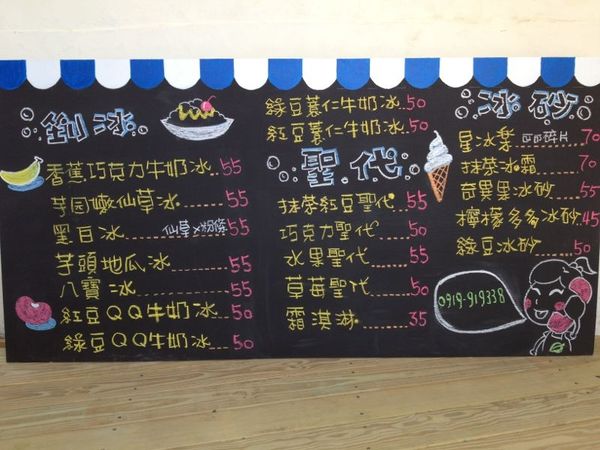 刨冰
香蕉巧克力牛奶冰 55
芋園嫩仙草冰 55
黑白冰 仙草×粉條 55
芋頭地瓜冰 55
八寶冰 55
紅豆QQ牛奶冰 50
綠豆QQ牛奶冰 50
綠豆薏仁牛奶冰 50
紅豆薏仁牛奶冰 50
聖代
抹茶紅豆聖代 55
巧克力聖代 50
水果聖代 55
草莓聖代 50
霜淇淋 35
冰砂
星冰樂 巧巧碎片 70
抹茶冰霜 70
奇異果冰砂 55
檸檬多多冰砂 45
綠豆冰砂 50
0919-919338